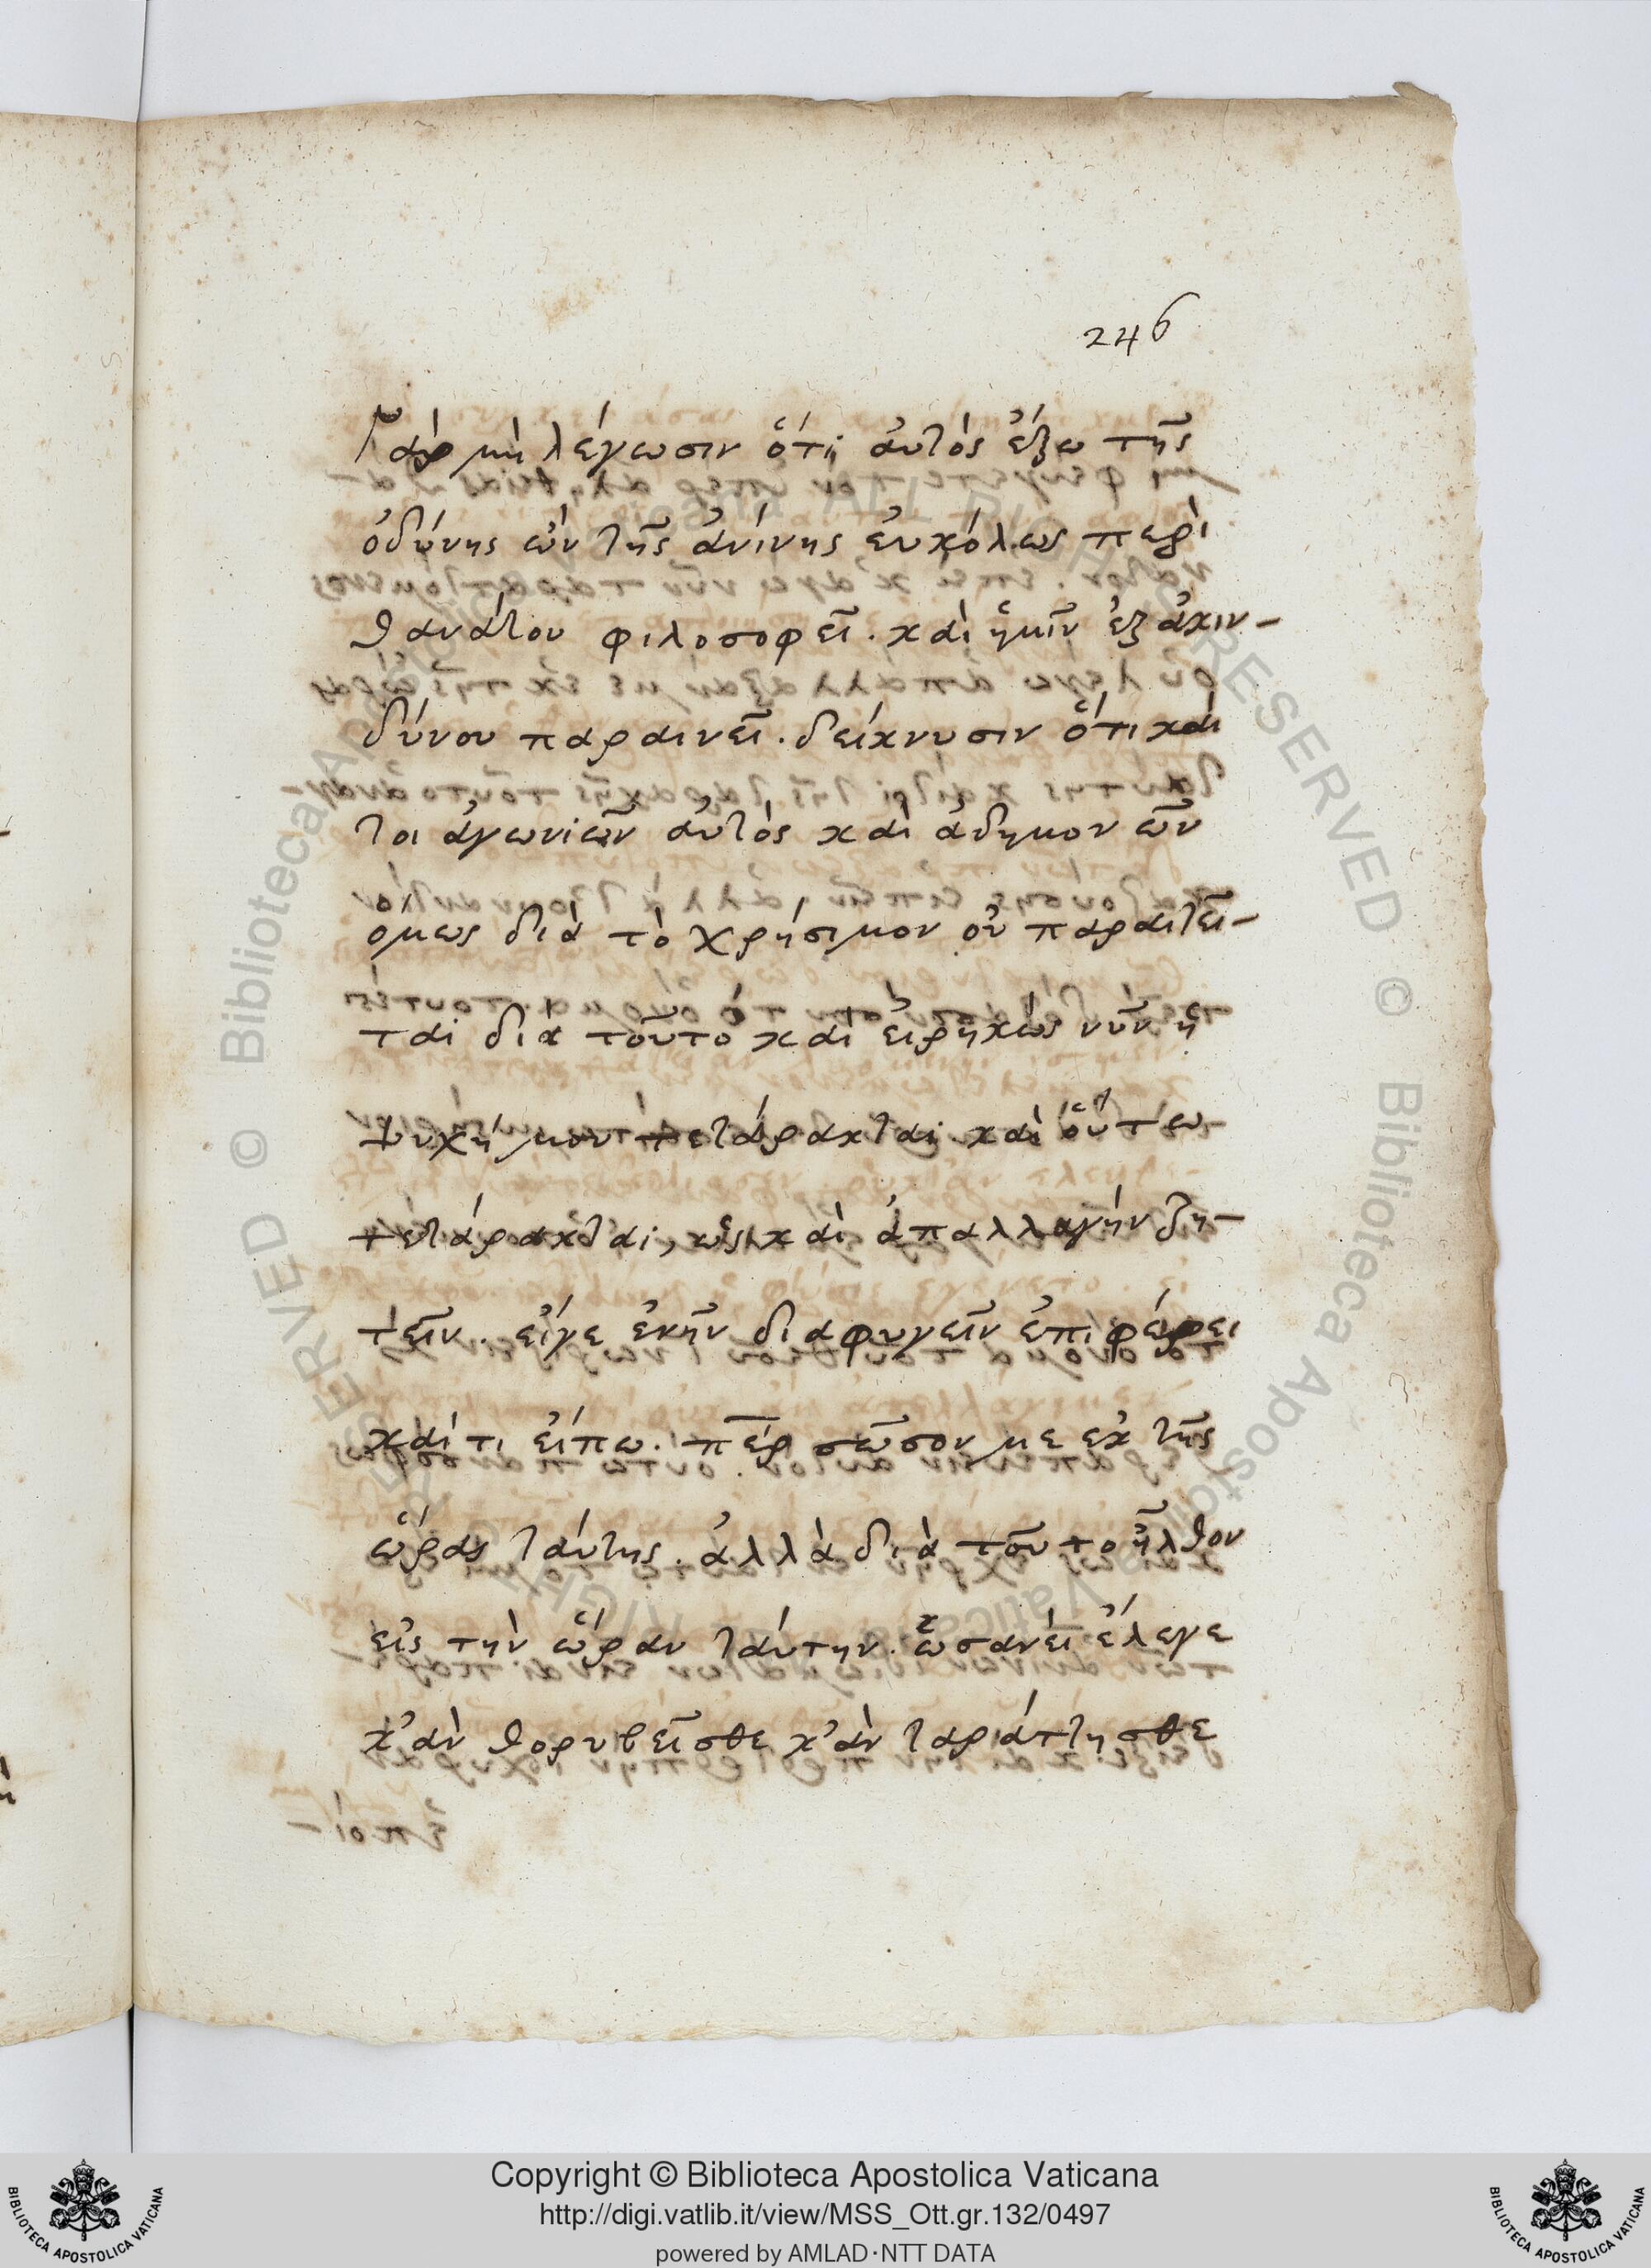 246
Γὰρ μὴ λέγωσιν ὅτι ἀυτὸς ἔξω τῆς
ὀδύνης ὢν τῆς ἀνίνης ἐυκόλως περὶ
θανάτου φιλοσοφεῖ. καὶ ἡμῖν ἐξ ἀκιν-
δύνου παραινεῖ. δείκνυσιν ὅτι καί
τοι ἀγωνιῶν ἀυτὸς καὶ ἀδημονῶν
ὅμως διὰ τὸ χρήσιμον οὐ παραιτεῖ-
ται διὰ τοῦτο καὶ εἰρηκὼς νῦν ἡ
ψυχή μου τετάρακται καὶ ὅυτω
τετάρακται, ὡς καὶ ἀπαλλαγὴν ζη-
τεῖν. εἴγε ἐνῆν διαφυγεῖν ἐπιφέρει
καὶ τι εἴπω. περ σῶσον με ἐκ τῆς
ὥρας τάυτης. ἀλλὰ διὰ τοῦτο ἦλθον
εἰς τὴν ὥραν τάυτην. ὡσανεὶ ἔλεγε
κ'ἂν θορυβεῖσθε κ'ἂν ταράττησθε
Copyright © Biblioteca Apostolica Vaticana
http://digi.vatlib.it/view/MSS_Ott.gr.132/0497
powered by AMLAD·NTT DATA
BIBLIOTECA APOSTOLICA VATICANA
BIBLIOTECA APOSTOLICA VATICANA